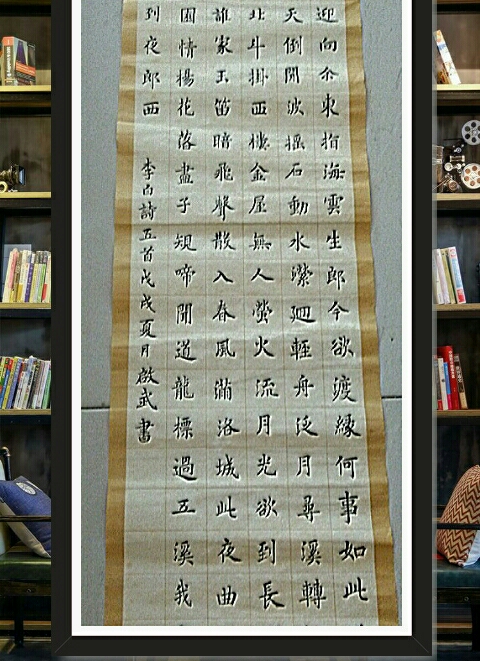 迎向余東指海雲生郎今欲渡緣何事如此
天倒開波搖石動水縈廻輕舟泛月尋溪轉
北斗掛西樓金屋無人螢火流月光欲到長
誰家玉笛暗飛聲散入春風滿洛城此夜曲
園情楊花落盡子規啼聞道龍標過五溪我
到夜郎西
李白詩五首戊戌夏月啟武書